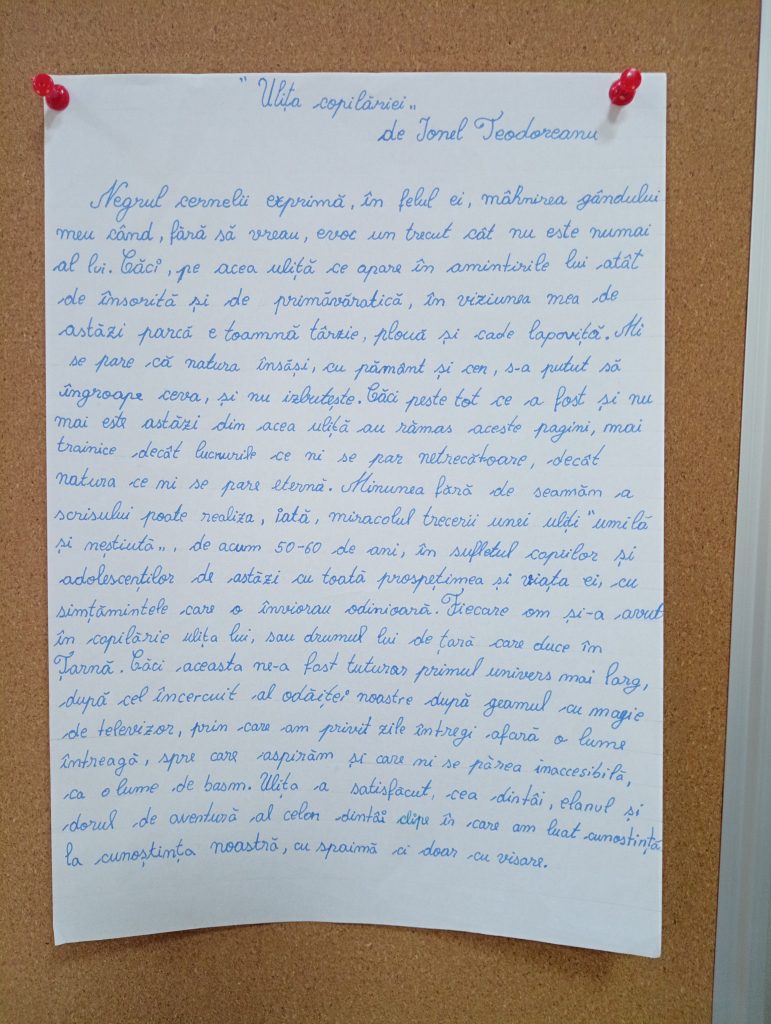 "Ulița copilăriei„
de Ionel Teodoreanu
Negrul cernelii exprimă, în felul ei, mâhnirea gândului
meu când, fără să vreau, evoc un trecut cât nu este numai
al lui. Căci, pe acea uliță ce apare în amintirile lui atât
de însorită și de primăvăratică, în viziunea mea de
astăzi parcă e toamnă târzie, plouă și cade lapoviță. Mi
se pare că natura însăși, cu pământ și cer, s-a putut să
îngroape ceva, și nu izbutește. Căci peste tot ce a fost și nu
mai este astăzi din acea uliță au rămas aceste pagini, mai
trainice decât lucrurile ce ni se par netrecătoare, decât
natura ce ni se pare eternă. Minunea fără de seamăn a
scrisului poate realiza, iată, miracolul trecerii unei uliți "umilă
și neștiută„, de acum 50-60 de ani, în sufletul copiilor și
adolescenților de astăzi cu toată prospețimea și viața ei, cu
simțămintele care o înviorau odinioară. Fiecare om și-a avut
în copilărie ulița lui, sau drumul lui de țară care duce în
Țarnă. Căci aceasta ne-a fost tuturor primul univers mai larg,
după cel încercuit al odăiței noastre după geamul cu magie
de televizor, prin care am privit zile întregi afară o lume
întreagă, spre care aspirăm și care ni se părea inaccesibilă,
ca o lume de basm. Ulița a satisfăcut, cea dintâi, elanul și
dorul de aventură al celor dintâi clipe în care am luat cunostință
la cunoștința noastră, cu spaimă ci doar cu visare.